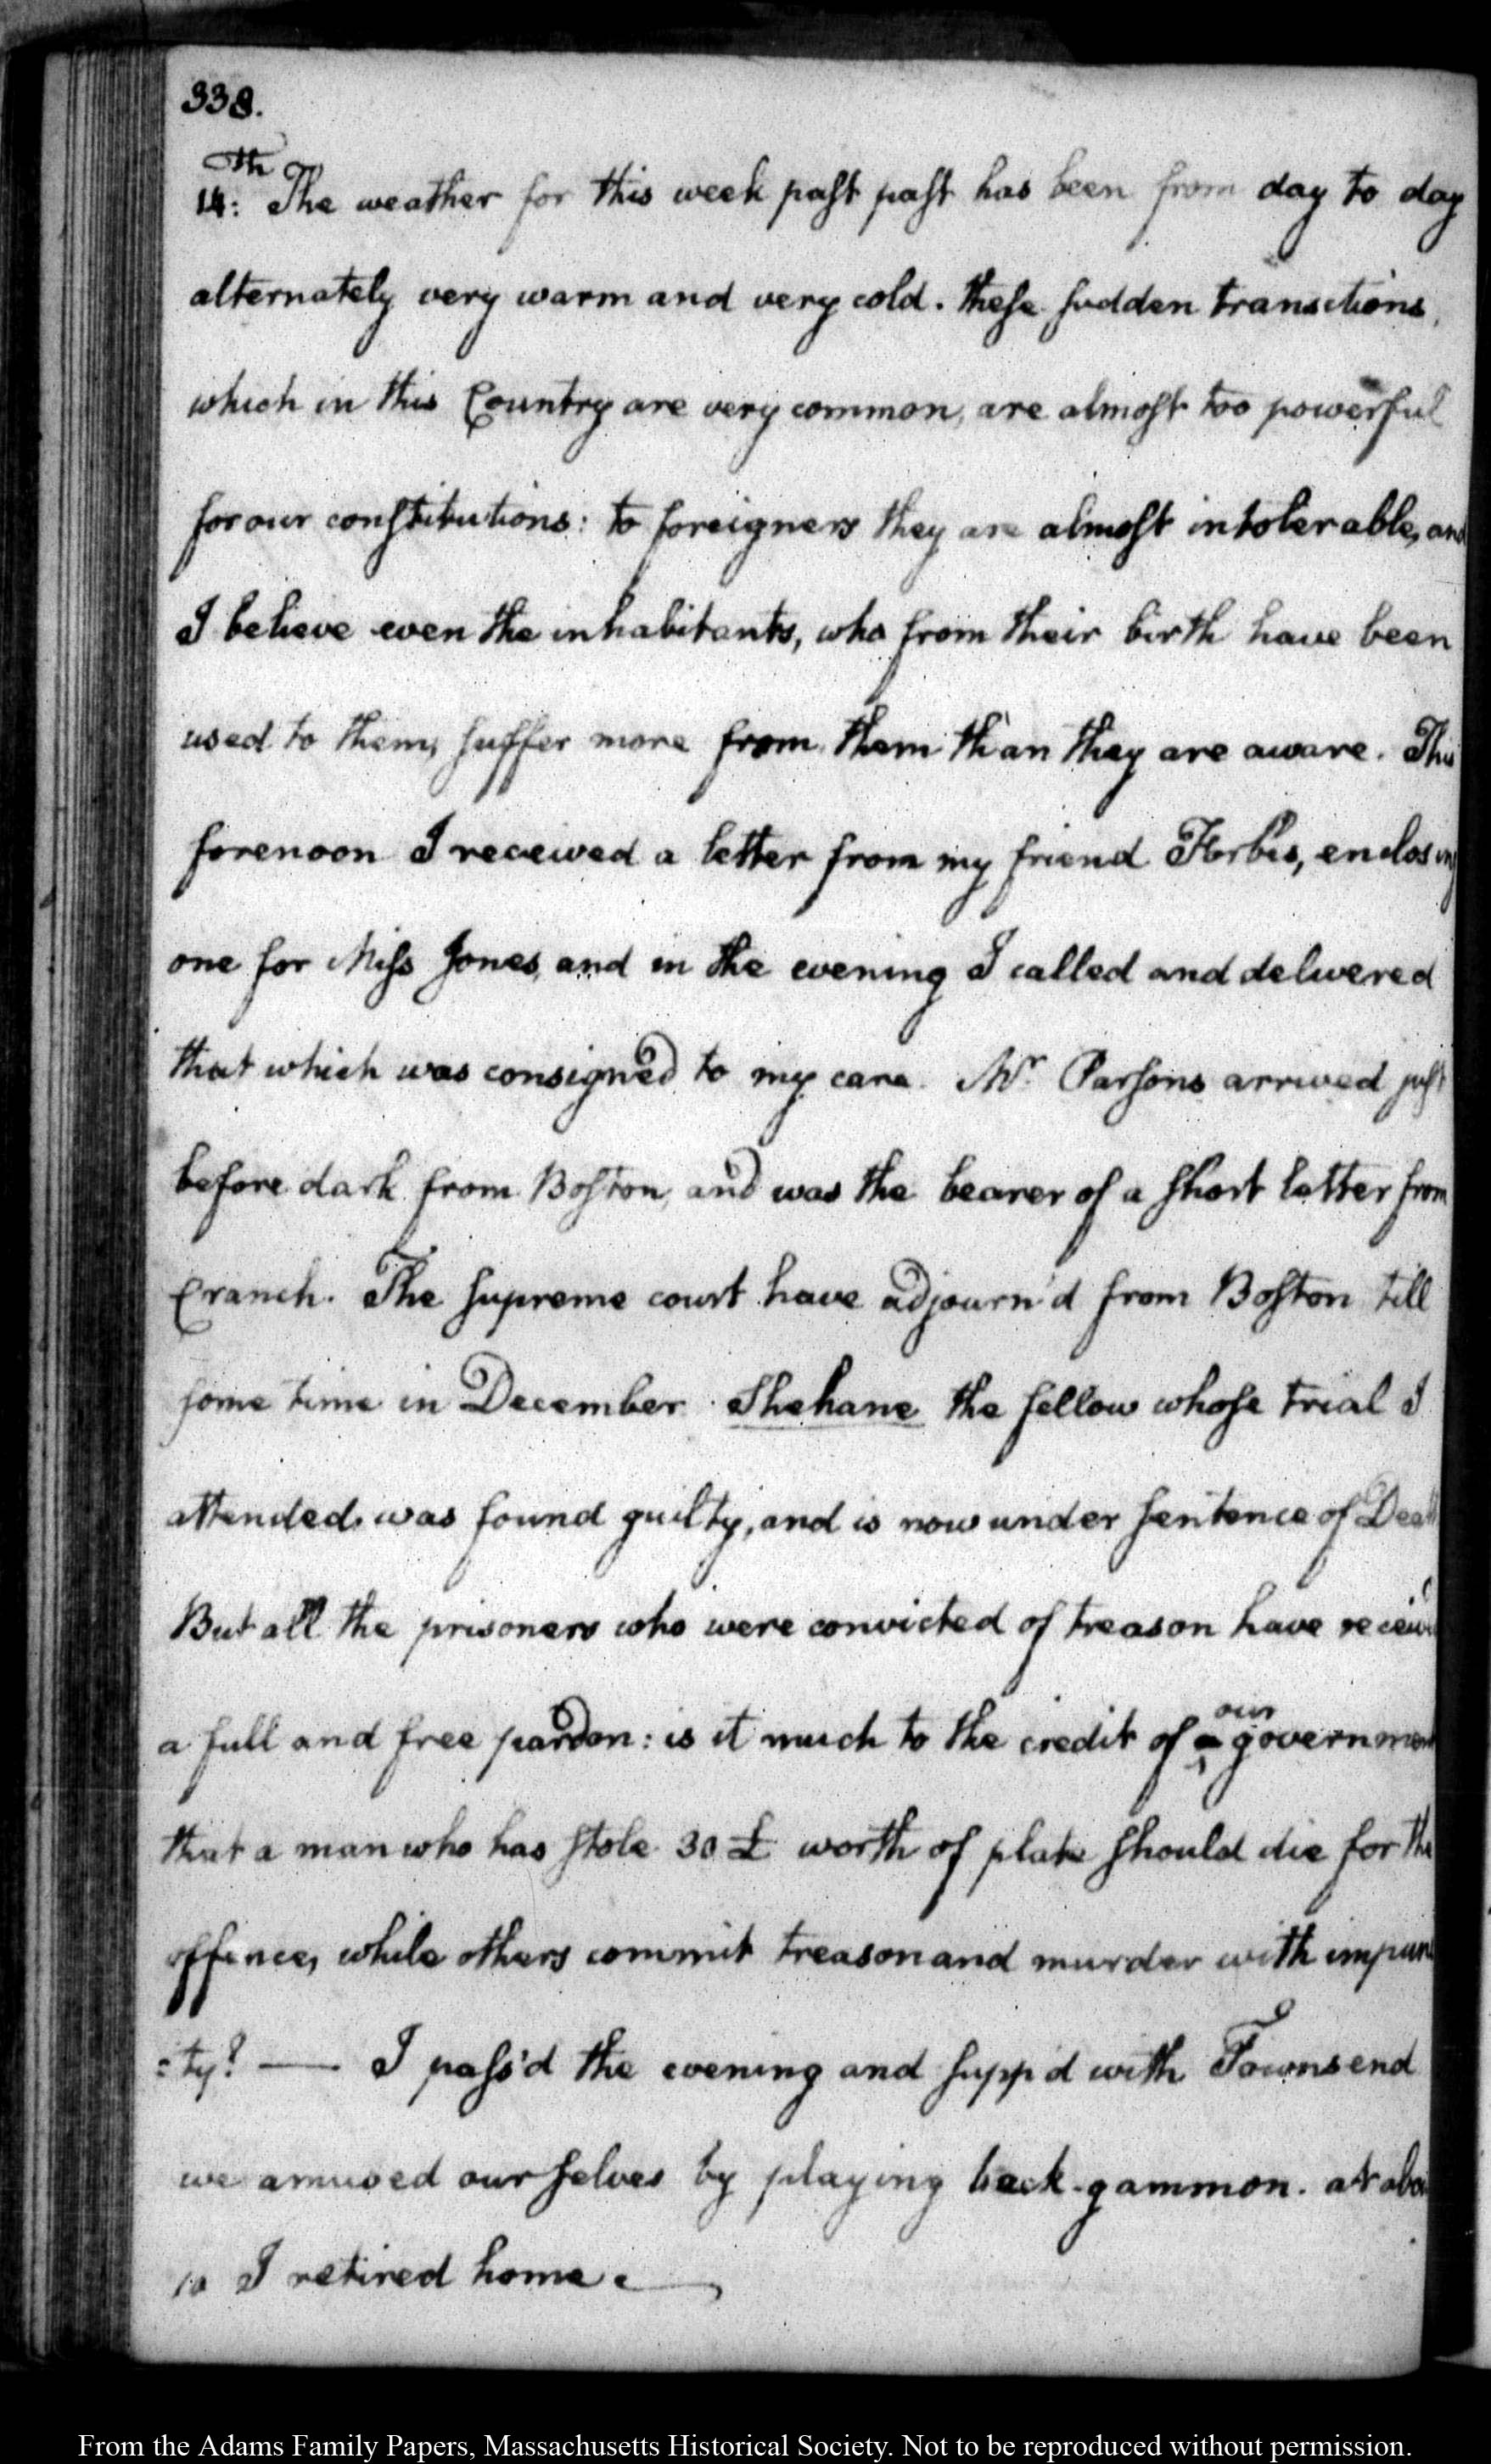 338.
14th: The weather for this week past past has been from day to day
alternately very warm and very cold. these sudden transctions,
which in this Country are very common, are almost too powerful
for our constitutions: to foreigners they are almost intolerable, and
I believe even the inhabitants, who from their birth have been
used to them, suffer more from them than they are aware. This
forenoon I received a letter from my friend Forbes, enclosing
one for Miss Jones, and in the evening I called and delivered
that which was consigned to my care. Mr. Parsons arrived just
before dark from Boston, and was the bearer of a short letter from
Cranch. The supreme court have adjourn'd from Boston till
some time in December. Shehane the fellow whose trial I
attended, was found guilty, and is now under sentence of Death
But all the prisoners who were convicted of treason have receiv'd
a full and free pardon: is it much to the credit of our government
that a man who has stole 30 £ worth of plate should die for the
offence, while others commit treason and murder with impuni
=ty? — I pass'd the evening and supp'd with Townsend
we amused ourselves by playing back-gammon. at abou
10 I retired home.
From the Adams Family Papers, Massachusetts Historical Society. Not to be reproduced without permission.